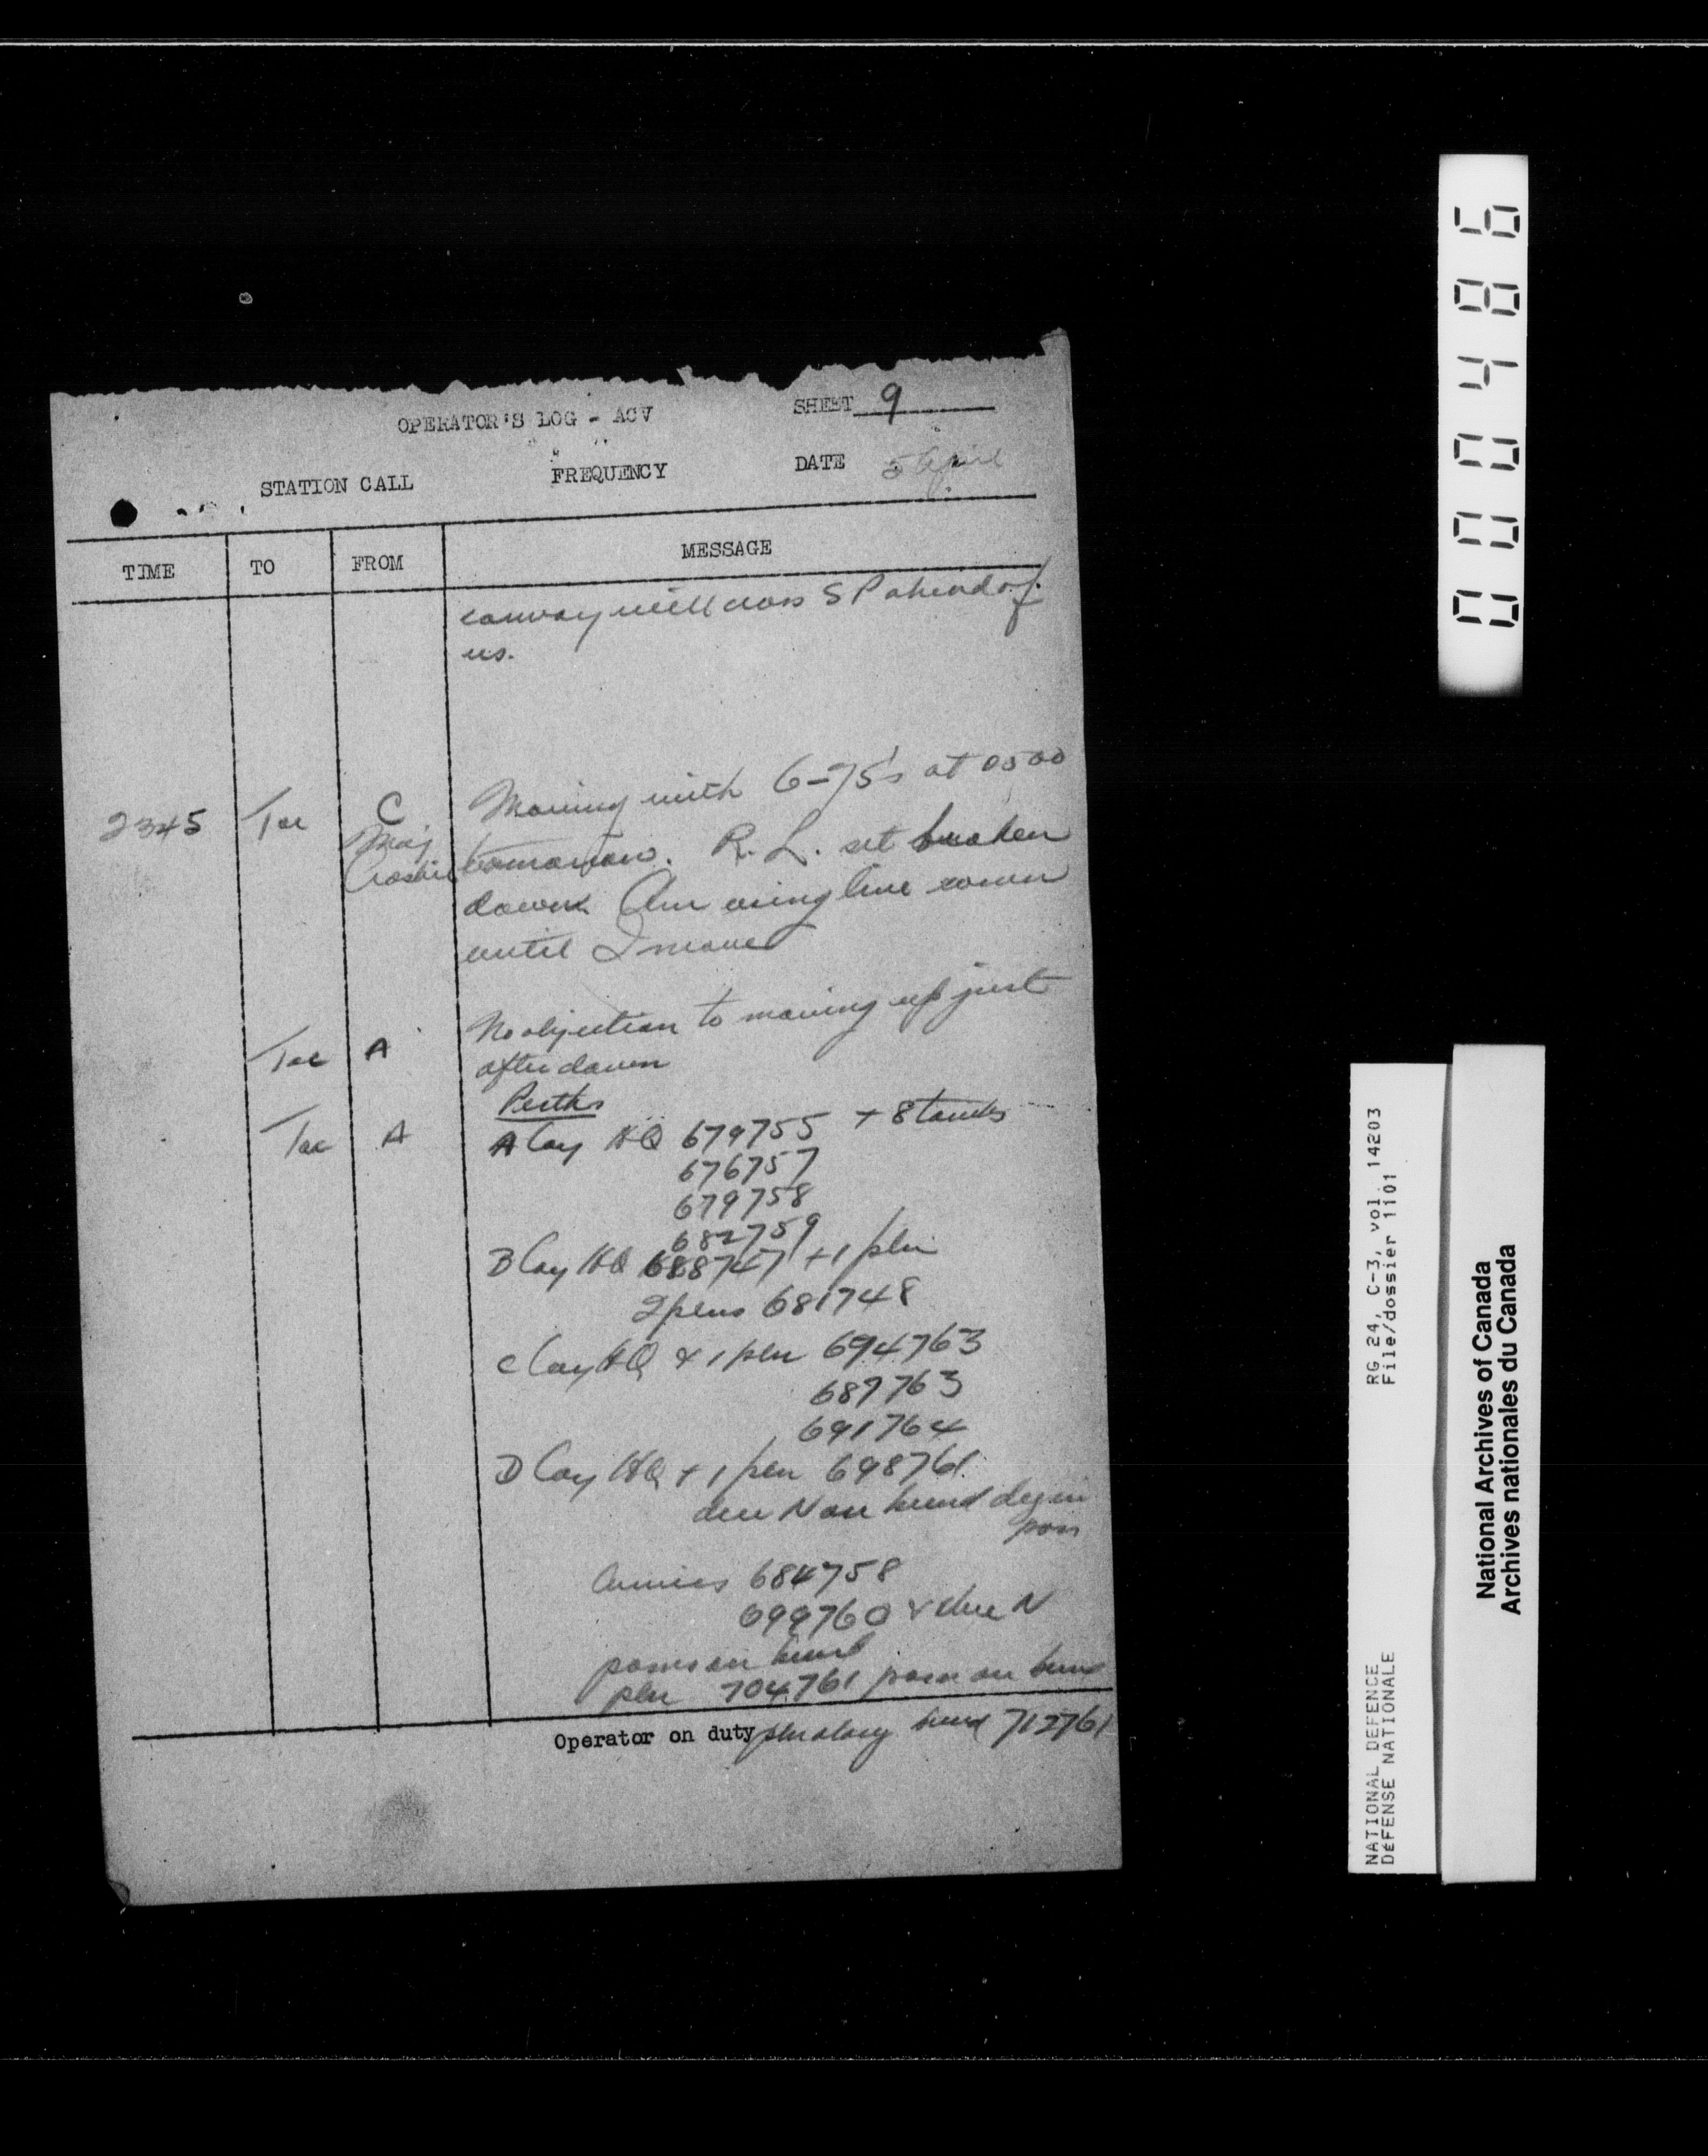 OPERATOR'S LOG - ACV SHEET 9
STATION CALL FREQUENCY DATE 5 April
TIME TO FROM MESSAGE
convoy will cross S P ahead of
us.
2345 Tac C Moving with 6-75's at 0500
Maj
Crosbie tomorrow. R.L. set broken
down Am using line comm
until I move
Tac A No objection to moving up just
after dawn
Perths
Tac A A Coy HQ 679755 + 8 tanks
676757
679758
682759
B Coy HQ 688747 + 1 pln
2 plns 681748
C Coy HQ & 1 pln 694763
687763
691764
D Coy HQ + 1 pln 698761
due N on bund dug in
posn
684758
699760 & due N
posns on bund
pln 704761 posn on bund
Operator on duty pln along bund 712761
000486
RG 24, C-3, vol. 14203
File/dossier 1101
NATIONAL DEFENCE
DÉFENSE NATIONALE
National Archives of Canada
Archives nationales du Canada